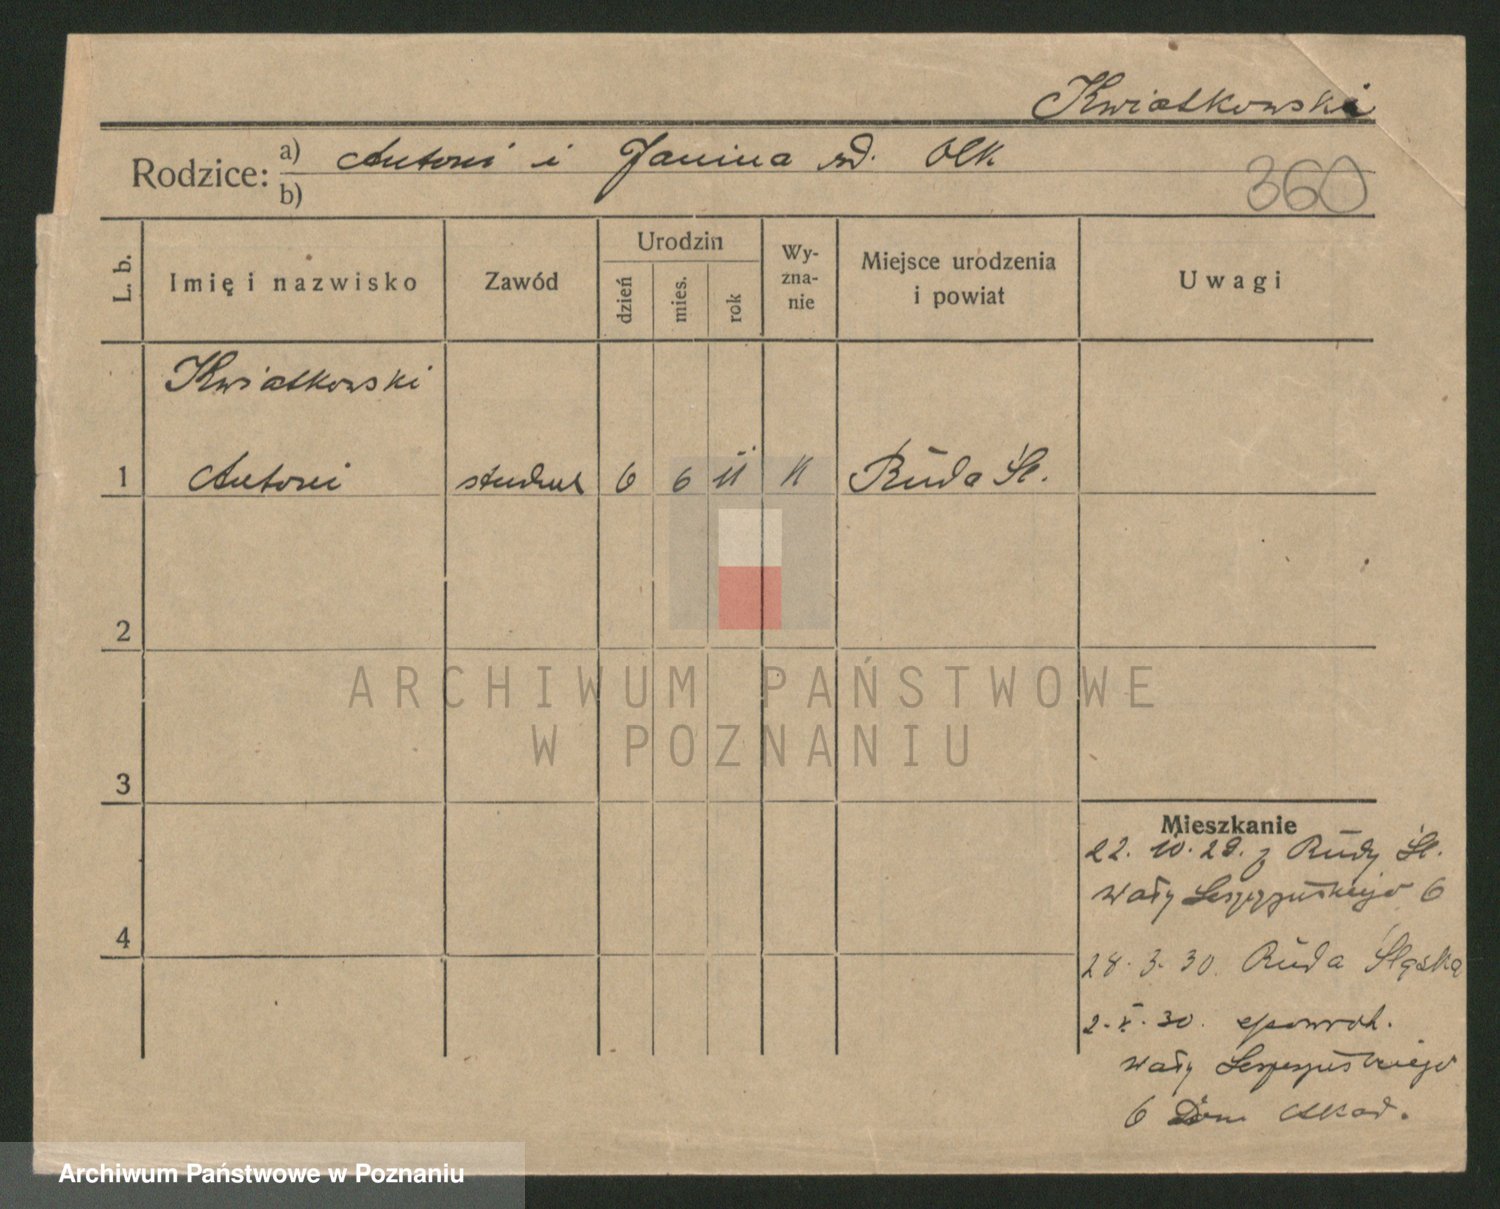 Kwiatkowski
Rodzice: a) Antoni i Janina rd. Olk
b)
360
L. b.
Imię i nazwisko
Zawód
Urodzin
dzień
mies.
rok
Wy-
zna-
nie
Miejsce urodzenia
i powiat
Uwagi
Kwiatkowski
1 Antoni student 6 6 11 K Ruda Śl.
2
3
4
ARCHIWUM PAŃSTWOWE
W POZNANIU
Mieszkanie
22. 10. 29. z Rudy Śl.
Wały Leszczyńskiego 6
28. 3. 30. Ruda Śląska
2. X. 30.
Wały Leszczyńskiego
6 Dom Akad.
Archiwum Państwowe w Poznaniu